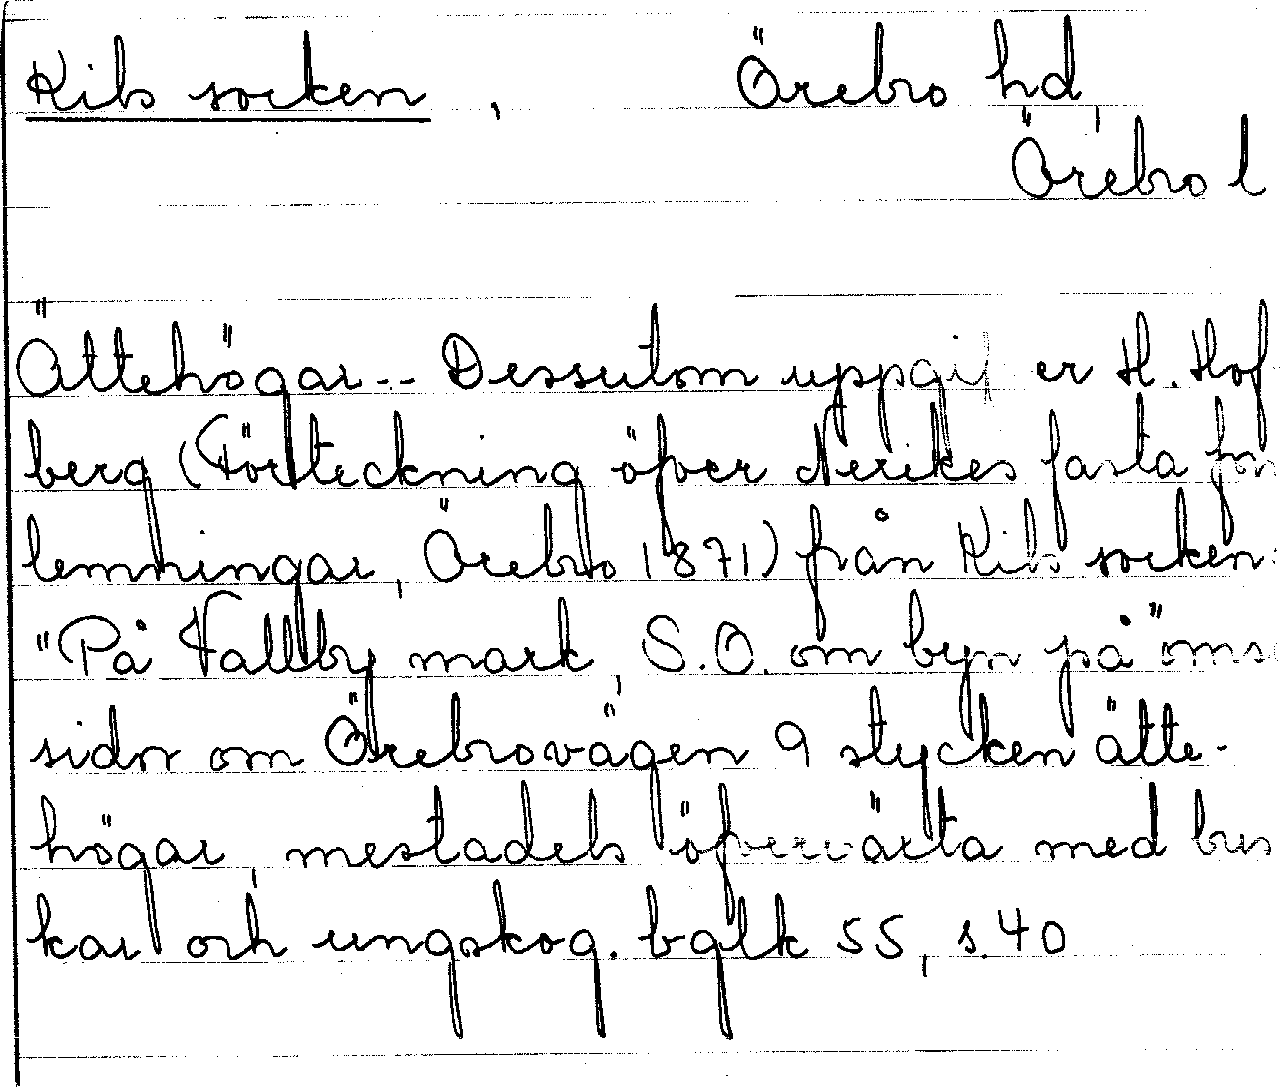 Kils socken, Örebro hd,
Örebro l
Ättehögar -- Dessutom uppgifer H. Hof
berg (Förteckning öfver Nerikes fasta forn
lemningar, Örebro 1871) från Kils socken:
"På Vallby mark, S.O. om byn på ömse
sidor om Örebrovägen 9 stycken ätte-
högar, mestadels öfvervärta med bus
kar och ungskog. bglk 55, s.40